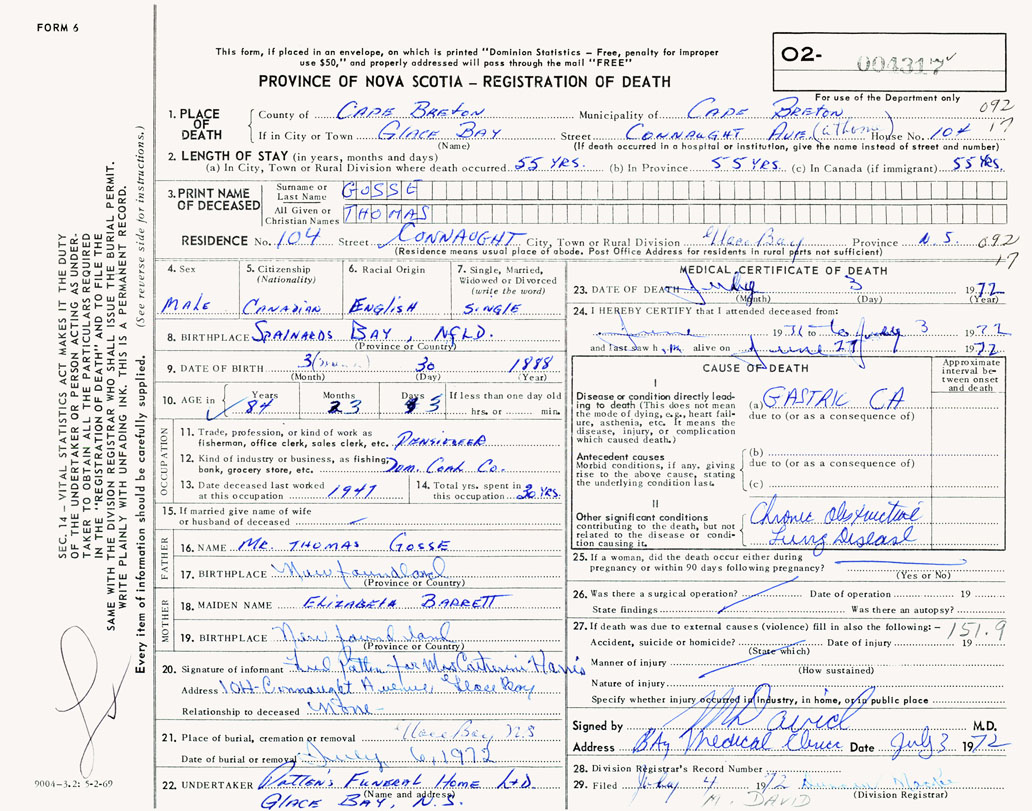 FORM 6
This form, if placed in an envelope, on which is printed "Dominion Statistics – Free, penalty for improper
use $50," and properly addressed will pass through the mail "FREE"
PROVINCE OF NOVA SCOTIA – REGISTRATION OF DEATH
O2- 004317
For use of the Department only
092
17
1. PLACE OF DEATH
County of CAPE BRETON Municipality of CAPE BRETON
If in City or Town GLACE BAY Street CONNAUGHT AVE. (at home) House No. 104
(Name) (If death occurred in a hospital or institution, give the name instead of street and number)
2. LENGTH OF STAY (in years, months and days)
(a) In City, Town or Rural Division where death occurred 55 YRS. (b) In Province 55 YRS. (c) In Canada (if immigrant) 55 YRS.
3. PRINT NAME OF DECEASED
Surname or Last Name GOSSE
All Given or Christian Names THOMAS
RESIDENCE No. 104 Street CONNAUGHT City, Town or Rural Division Glace Bay Province N.S. 092
(Residence means usual place of abode. Post Office Address for residents in rural parts not sufficient)
17
4. Sex
MALE
5. Citizenship
(Nationality)
CANADIAN
6. Racial Origin
ENGLISH
7. Single, Married,
Widowed or Divorced
(write the word)
SINGLE
8. BIRTHPLACE SPAINARDS BAY, NFLD.
(Province or Country)
9. DATE OF BIRTH 3 30 1888
(Month) (Day) (Year)
10. AGE in Years Months Days If less than one day old
84 3 3 hrs. or min.
OCCUPATION
11. Trade, profession, or kind of work as
fisherman, office clerk, sales clerk, etc. PENSIONEER
12. Kind of industry or business, as fishing,
bank, grocery store, etc. DOM. COAL CO.
13. Date deceased last worked
at this occupation 1947
14. Total yrs. spent in
this occupation 30 YRS.
15. If married give name of wife
or husband of deceased
FATHER
16. NAME MR. THOMAS GOSSE
17. BIRTHPLACE Newfoundland
(Province or Country)
MOTHER
18. MAIDEN NAME ELIZABETH BARRETT
19. BIRTHPLACE Newfoundland
(Province or Country)
20. Signature of informant Patten for Mrs Catherine Harris
Address 104 Connaught Avenue Glace Bay
Relationship to deceased none
21. Place of burial, cremation or removal Glace Bay N.S.
Date of burial or removal July 6, 1972
22. UNDERTAKER PATTEN'S FUNERAL HOME LTD.
(Name and address)
GLACE BAY, N.S.
MEDICAL CERTIFICATE OF DEATH
23. DATE OF DEATH July 3 1972
(Month) (Day) (Year)
24. I HEREBY CERTIFY that I attended deceased from:
June 19 71 to July 3 1972
and last saw him alive on June 27 1972
CAUSE OF DEATH
Approximate
interval be-
tween onset
and death
I
Disease or condition directly lead-
ing to death (This does not mean
the mode of dying, e.g., heart fail-
ure, asthenia, etc. It means the
disease, injury, or complication
which caused death.)
(a) GASTRIC CA
due to (or as a consequence of)
Antecedent causes
Morbid conditions, if any, giving
rise to the above cause, stating
the underlying condition last.
(b)
due to (or as a consequence of)
(c)
II
Other significant conditions
contributing to the death, but not
related to the disease or condi-
tion causing it.
Chronic Obstructive
Lung Disease
25. If a woman, did the death occur either during
pregnancy or within 90 days following pregnancy?
(Yes or No)
26. Was there a surgical operation? Date of operation 19
State findings Was there an autopsy?
27. If death was due to external causes (violence) fill in also the following: – 151.9
Accident, suicide or homicide? Date of injury 19
(State which)
Manner of injury
(How sustained)
Nature of injury
Specify whether injury occurred in Industry, in home, or in public place
Signed by M David M.D.
Address BAY Medical Clinic Date July 3 1972
28. Division Registrar's Record Number
29. Filed July 4 1972
(Division Registrar)
M. DAVID
SEC. 14 – VITAL STATISTICS ACT MAKES IT THE DUTY
OF THE UNDERTAKER OR PERSON ACTING AS UNDER-
TAKER TO OBTAIN ALL THE PARTICULARS REQUIRED
IN THE "REGISTRATION OF DEATH" AND TO FILE THE
SAME WITH THE DIVISION REGISTRAR WHO SHALL ISSUE THE BURIAL PERMIT.
WRITE PLAINLY WITH UNFADING INK. THIS IS A PERMANENT RECORD.
Every item of information should be carefully supplied. (See reverse side for instructions.)
9004-3.2: 5-2-69